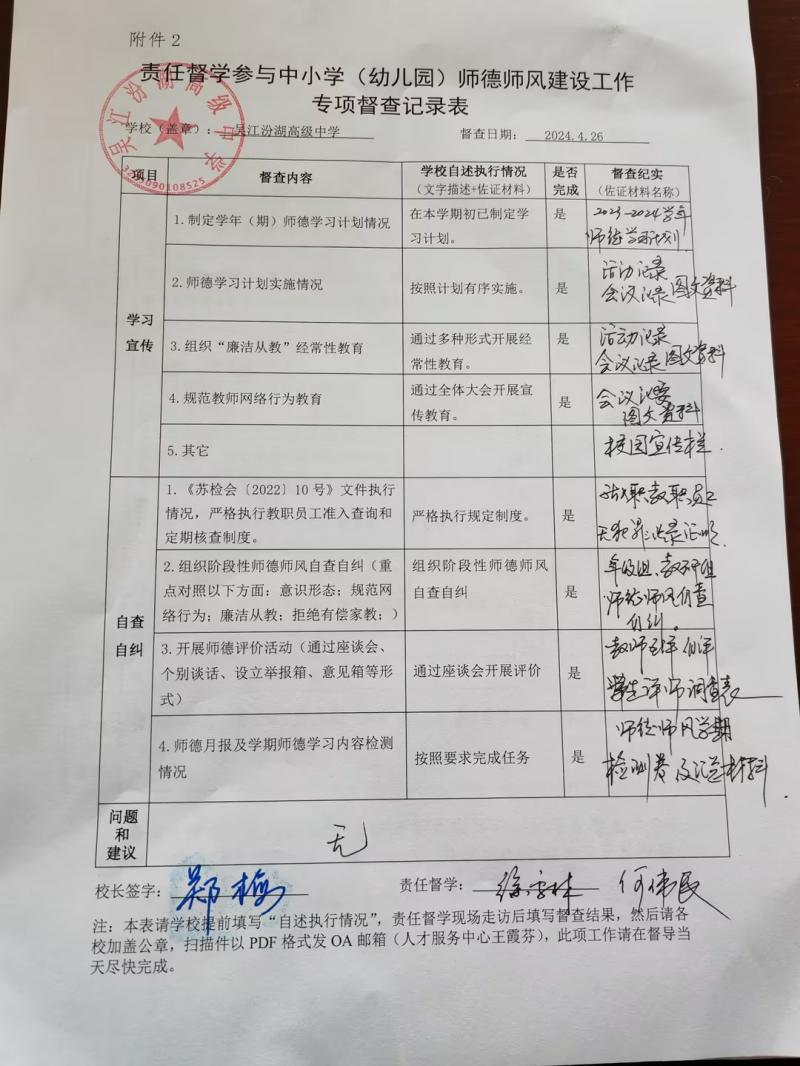 附件 2
责任督学参与中小学（幼儿园）师德师风建设工作
专项督查记录表
学校（盖章）： 吴江汾湖高级中学 督查日期： 2024.4.26
吴江汾湖高级中学
3209090108525
项目 督查内容 学校自述执行情况（文字描述+佐证材料） 是否完成 督查纪实（佐证材料名称）
学习
宣传
1.制定学年（期）师德学习计划情况
在本学期初已制定学
习计划。
是
2023-2024学年
师德学习计划
2.师德学习计划实施情况
按照计划有序实施。
是
活动记录
会议记录 图文资料
3.组织“廉洁从教”经常性教育
通过多种形式开展经
常性教育。
是
活动记录
会议记录 图文资料
4.规范教师网络行为教育
通过全体大会开展宣
传教育。
是
会议记要
图文资料
5.其它
校园宣传栏.
自查
自纠
1.《苏检会〔2022〕10 号》文件执行
情况，严格执行教职员工准入查询和
定期核查制度。
严格执行规定制度。
是
教职员工
无犯罪记录证明.
2.组织阶段性师德师风自查自纠（重
点对照以下方面：意识形态；规范网
络行为；廉洁从教；拒绝有偿家教；）
组织阶段性师德师风
自查自纠
是
年级组、教研组
师德师风自查
自纠。
3.开展师德评价活动（通过座谈会、
个别谈话、设立举报箱、意见箱等形
式）
通过座谈会开展评价
是
教师互评 自评
学生评师 调查表
4.师德月报及学期师德学习内容检测
情况
按照要求完成任务
是
师德师风学期
检测卷及汇总材料.
问题
和
建议
无
校长签字： 郑梅 责任督学： 何伟民
注：本表请学校提前填写“自述执行情况”，责任督学现场走访后填写督查结果，然后请各
校加盖公章，扫描件以 PDF 格式发 OA 邮箱（人才服务中心王霞芬），此项工作请在督导当
天尽快完成。